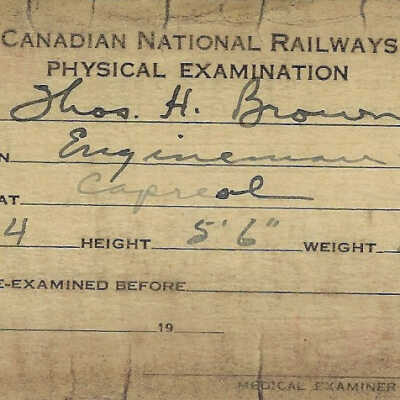 CANADIAN NATIONAL RAILWAYS
PHYSICAL EXAMINATION
Thos. H. Brown
N Engineman
AT Capreol
4 HEIGHT 5'6" WEIGHT
E-EXAMINED BEFORE
19
MEDICAL EXAMINER